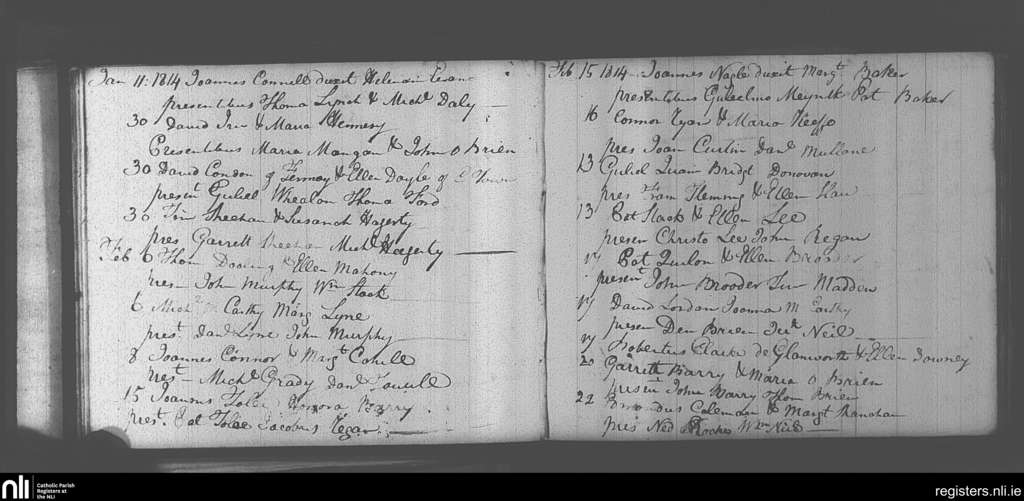 Jan 11: 1814 Joannes Connell duxit Helenam
presentibus Thoma Lynch & Michl Daly
30 David & Maria Hennesy
Presentibus Maria Mangan & John O Brien
30 David Condon of Fermoy & Ellen Doyle of
present Guliel Whealan Thoma Ford
30 Tim Sheehan & Susanah Hagerty
pres Garrett Sheehan Michl Hegerty
Feb 6 Thom & Ellen Mahony
pres John Murphy Wm Slack
6 Michl Mc Carthy Marg Lyne
prest Danl Lyne John Murphy
8 Joannes Connor & Margt Cahill
prest Michl Grady Danl
15 Joannes Foley Honora Barry
prest Pat Jacobus Regan
Feb 15 1814 Joannes Nagle duxit Margt Baker
presentibus Gulielmo Pat Baker
16 Connor Ryan & Maria Keeffe
pres Joan Curtin Danl Mullane
13 Guliel Bridgt Donovan
pres Fleming & Ellen
13 Pat Slack & Ellen Lee
presen Christo Lee John Regan
17 Pat & Ellen Brooder
present John Brooder Madden
17 David Lordan Joanna Mc Carthy
presen Den Brien Neil
17 Robertus Clarke de Glanworth & Ellen Downey
20 Garrett Barry & Maria O Brien
presen John Barry Thom Brien
22 Coleman & Margt Shanahan
pres Ned Roches Wm Neil
nli
Catholic Parish
Registers at
the NLI
registers.nli.ie